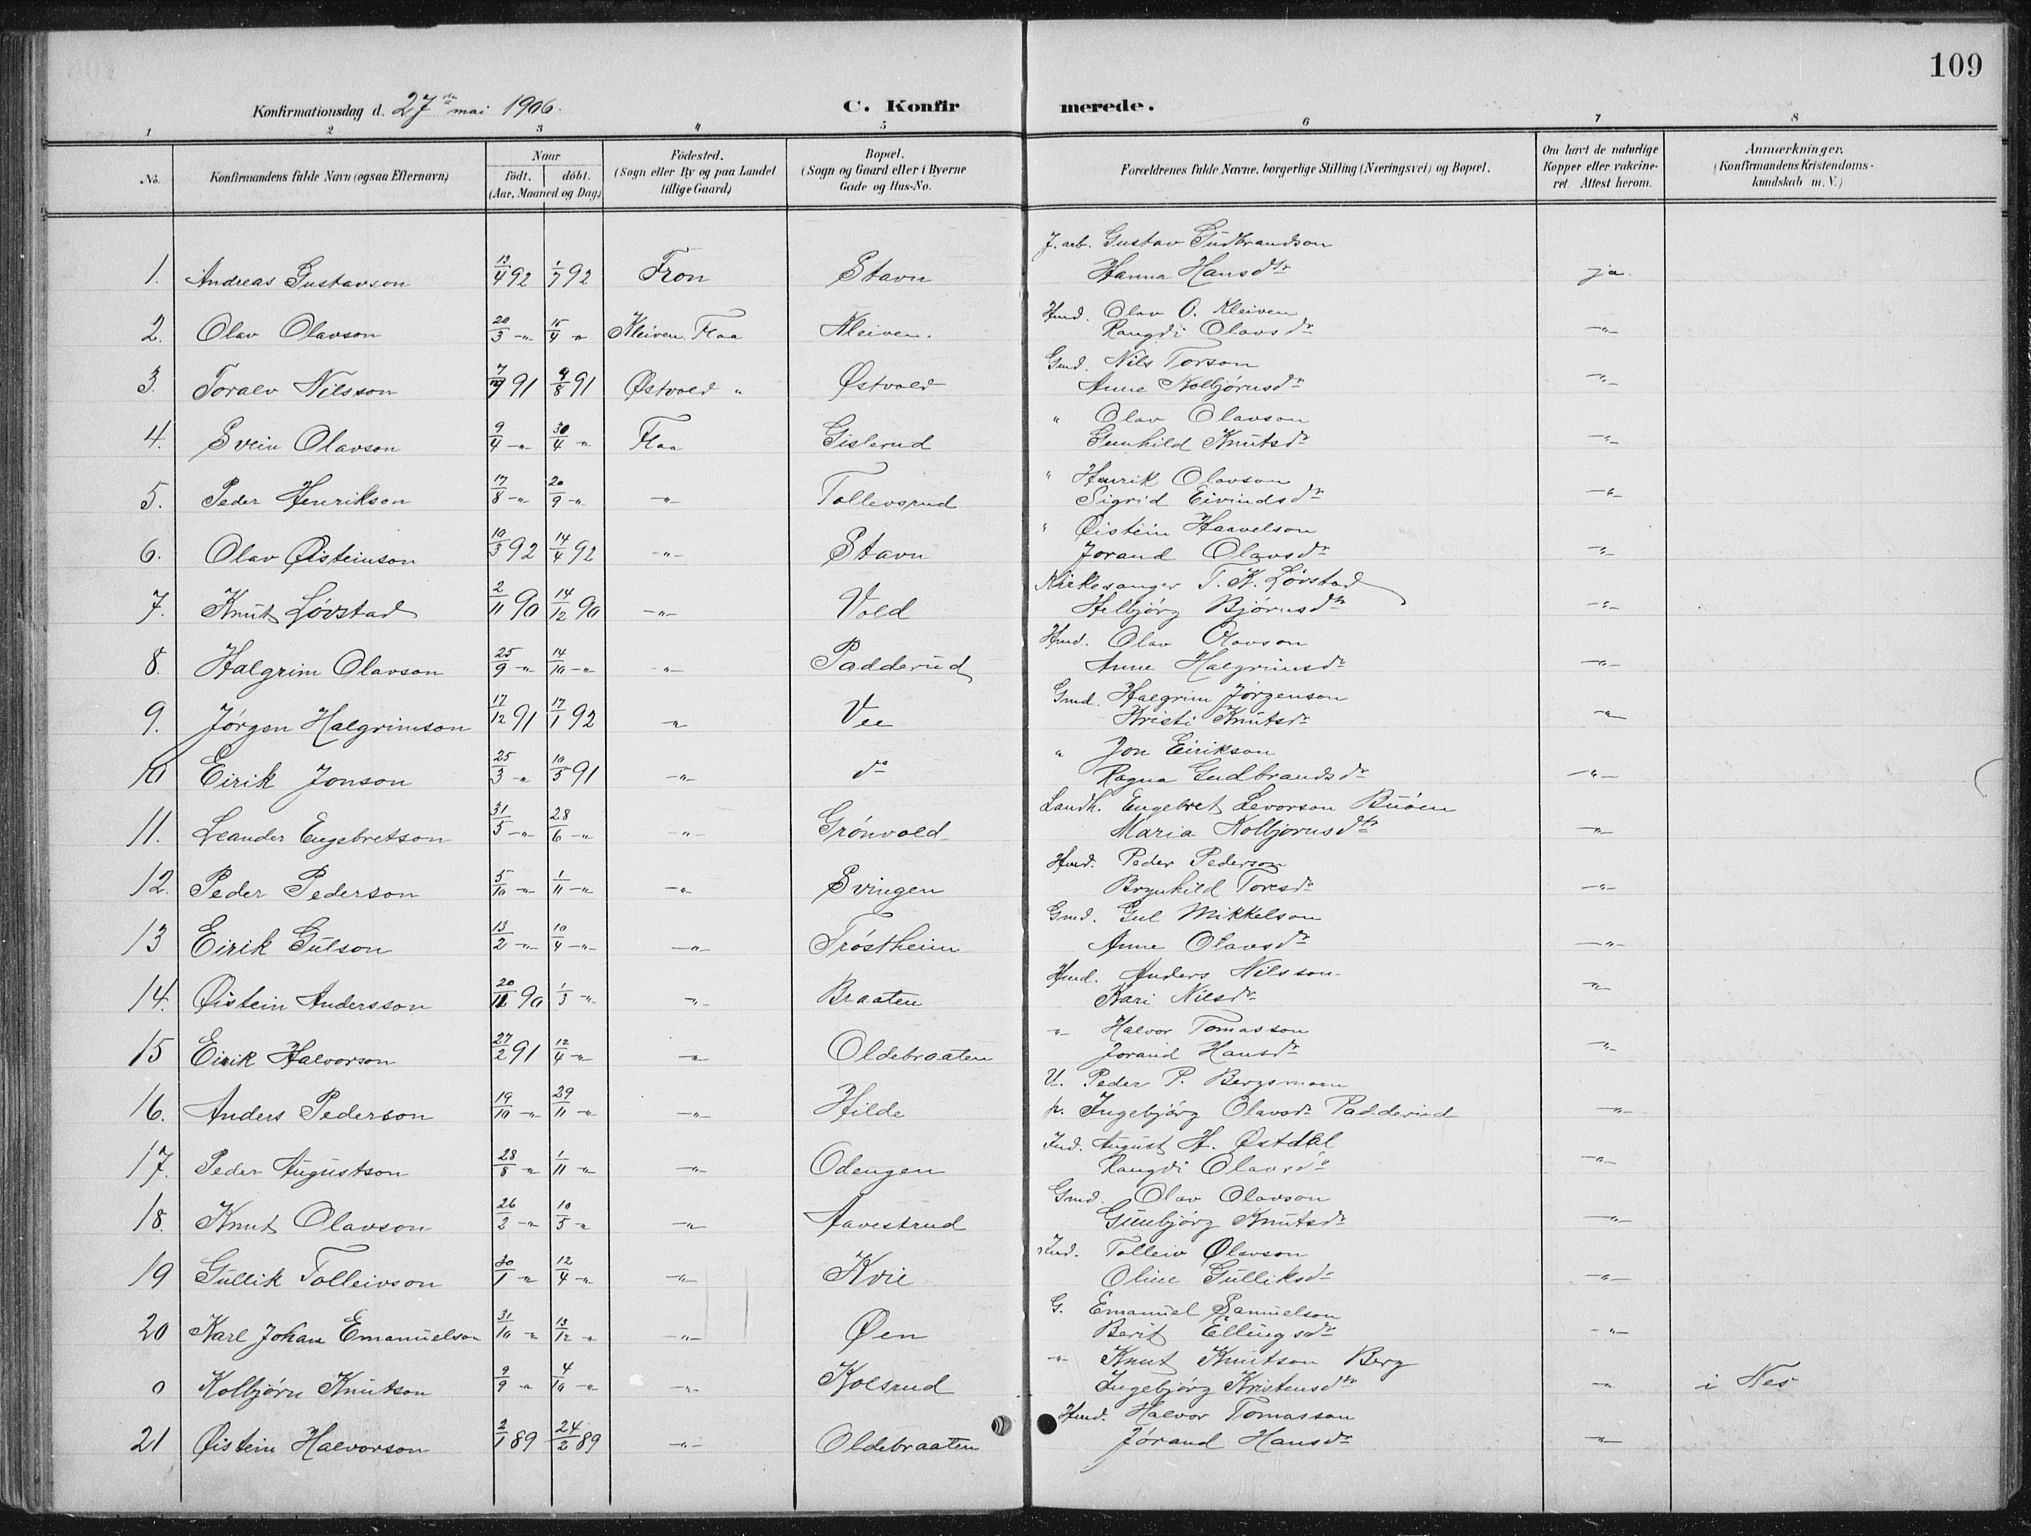 109
Konfirmationsdag d. 27de mai 1906.
C. Konfirmerede.
1 2 3 4 5 6 7 8
No. Konfirmandens fulde Navn (ogsaa Efternavn) Naar födt. döbt. (Aar, Maaned og Dag) Födested. (Sogn eller By og paa Landet tillige Gaard) Bopæl. (Sogn og Gaard eller i Byerne Gade og Hus-No. Forældrenes fulde Navne, borgerlige Stilling (Næringsvei) og Bopæl. Om havt de naturlige Kopper eller vakcineret. Attest herom. Anmærkninger, (Konfirmandens Kristendomskundskab m. V.)
J. arb. Gustav Gudbrandson
1. Andreas Gustavson 13/4 92 1/7 92 Fron Stavn Hanna Hansdtr ja.
Hmd. Olav O. Kleiven
2. Olav Olavson 20/3 -"- 15/4 " Kleiven Flaa Kleiven. Rangdi Olavsdr -"-
Gmd. Nils Torson
3. Toralv Nilsson 91 9/8 91 Østvold " Østvold Anne Kolbjørnsdr -"-
" Olav Olavson
4. Svein Olavson 9/4 -"- 30/4 -"- Flaa Gislerud Gunhild Knutsdr -"-
" Henrik Olavson
5. Peder Henrikson 17/8 -"- 20/9 -"- -"- Tollevsrud Sigrid Eivindsdr -"-
" Øistein Haavelson
6. Olav Øisteinson 10/3 92 14/4 92 -"- Stavn Jorand Olavsdr -"-
Kirkesanger T. K. Løvstad
7. Knut Løvstad 2/11 90 14/12 90 -"- Vold Helbjörg Bjørnsdtr -"-
Hmd. Olav Olavson
8. Halgrim Olavson 25/9 -"- 14/10 -"- -"- Padderud Anne Halgrimsdr -"-
Gmd. Halgrim Jørgenson
9. Jørgen Halgrimson 17/12 91 17/1 92 -"- Vee Kristi Knutsdr -"-
" Jon Eirikson
10 Eirik Jonson 25/3 -"- 10/5 91 -"- do Ragna Gudbrandsdr -"-
Landh. Engebret Levorson Buöen
11. Leander Engebretson 31/5 -"- 28/6 -"- -"- Grönvold Maria Kolbjørnsdtr -"-
Hmd. Peder Pederson
12. Peder Pederson 5/10 -"- 1/11 -"- -"- Svingen Brynhild Toresdr -"-
Gmd. Gul Mikkelson
13 Eirik Gulson 13/2 -"- 10/4 -"- -"- Tröstheim Anne Olavsdr -"-
Hmd. Anders Nilsson
14. Øistein Andersson 20/ 90 1/3 -"- -"- Braaten Kari Nilsdr -"-
-"- Halvor Tomasson
15 Eirik Halvorson 27/2 91 12/4 -"- -"- Oldebraaten Jorand Hansdr -"-
U. Peder P. Bergsmoen
16. Anders Pederson 19/10 -"- 29/11 -"- -"- Hilde p. Ingebjörg Olavsdr Padderud -"-
Ind. August H. Østdal
17. Peder Augustson 28/8 -"- 1/11 -"- -"- Odengen Rangdi Olavsdr -"-
Gmd. Olav Olavson
18. Knut Olavson 26/2 -"- 10/5 -"- -"- Aavestrud Gunbjörg Knutsdr -"-
Ind. Tolleiv Olavson
19 Gullik Tolleivson 30/1 -"- 12/4 -"- -"- Kvie Oline Gulliksdr -"-
G. Emanuel Samuelson
20 Karl Johan Emanuelson 31/10 -"- 13/12 -"- -"- Øen Berit Ellingsdr -"-
-"- Knut Knutson Berg
0 Kolbjörn Knutson 9/9 -"- 4/10 -"- -"- Kolsrud Ingebjörg Kristensdtr -"- i Nes
Hmd. Halvor Tomasson
21 Øistein Halvorson 2/1 89 24/2 89 -"- Oldebraaten Jørand Hansdr -"-